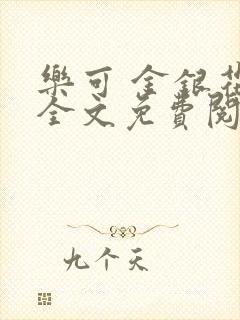 樂可 金銀花
全文免費閱
九个天